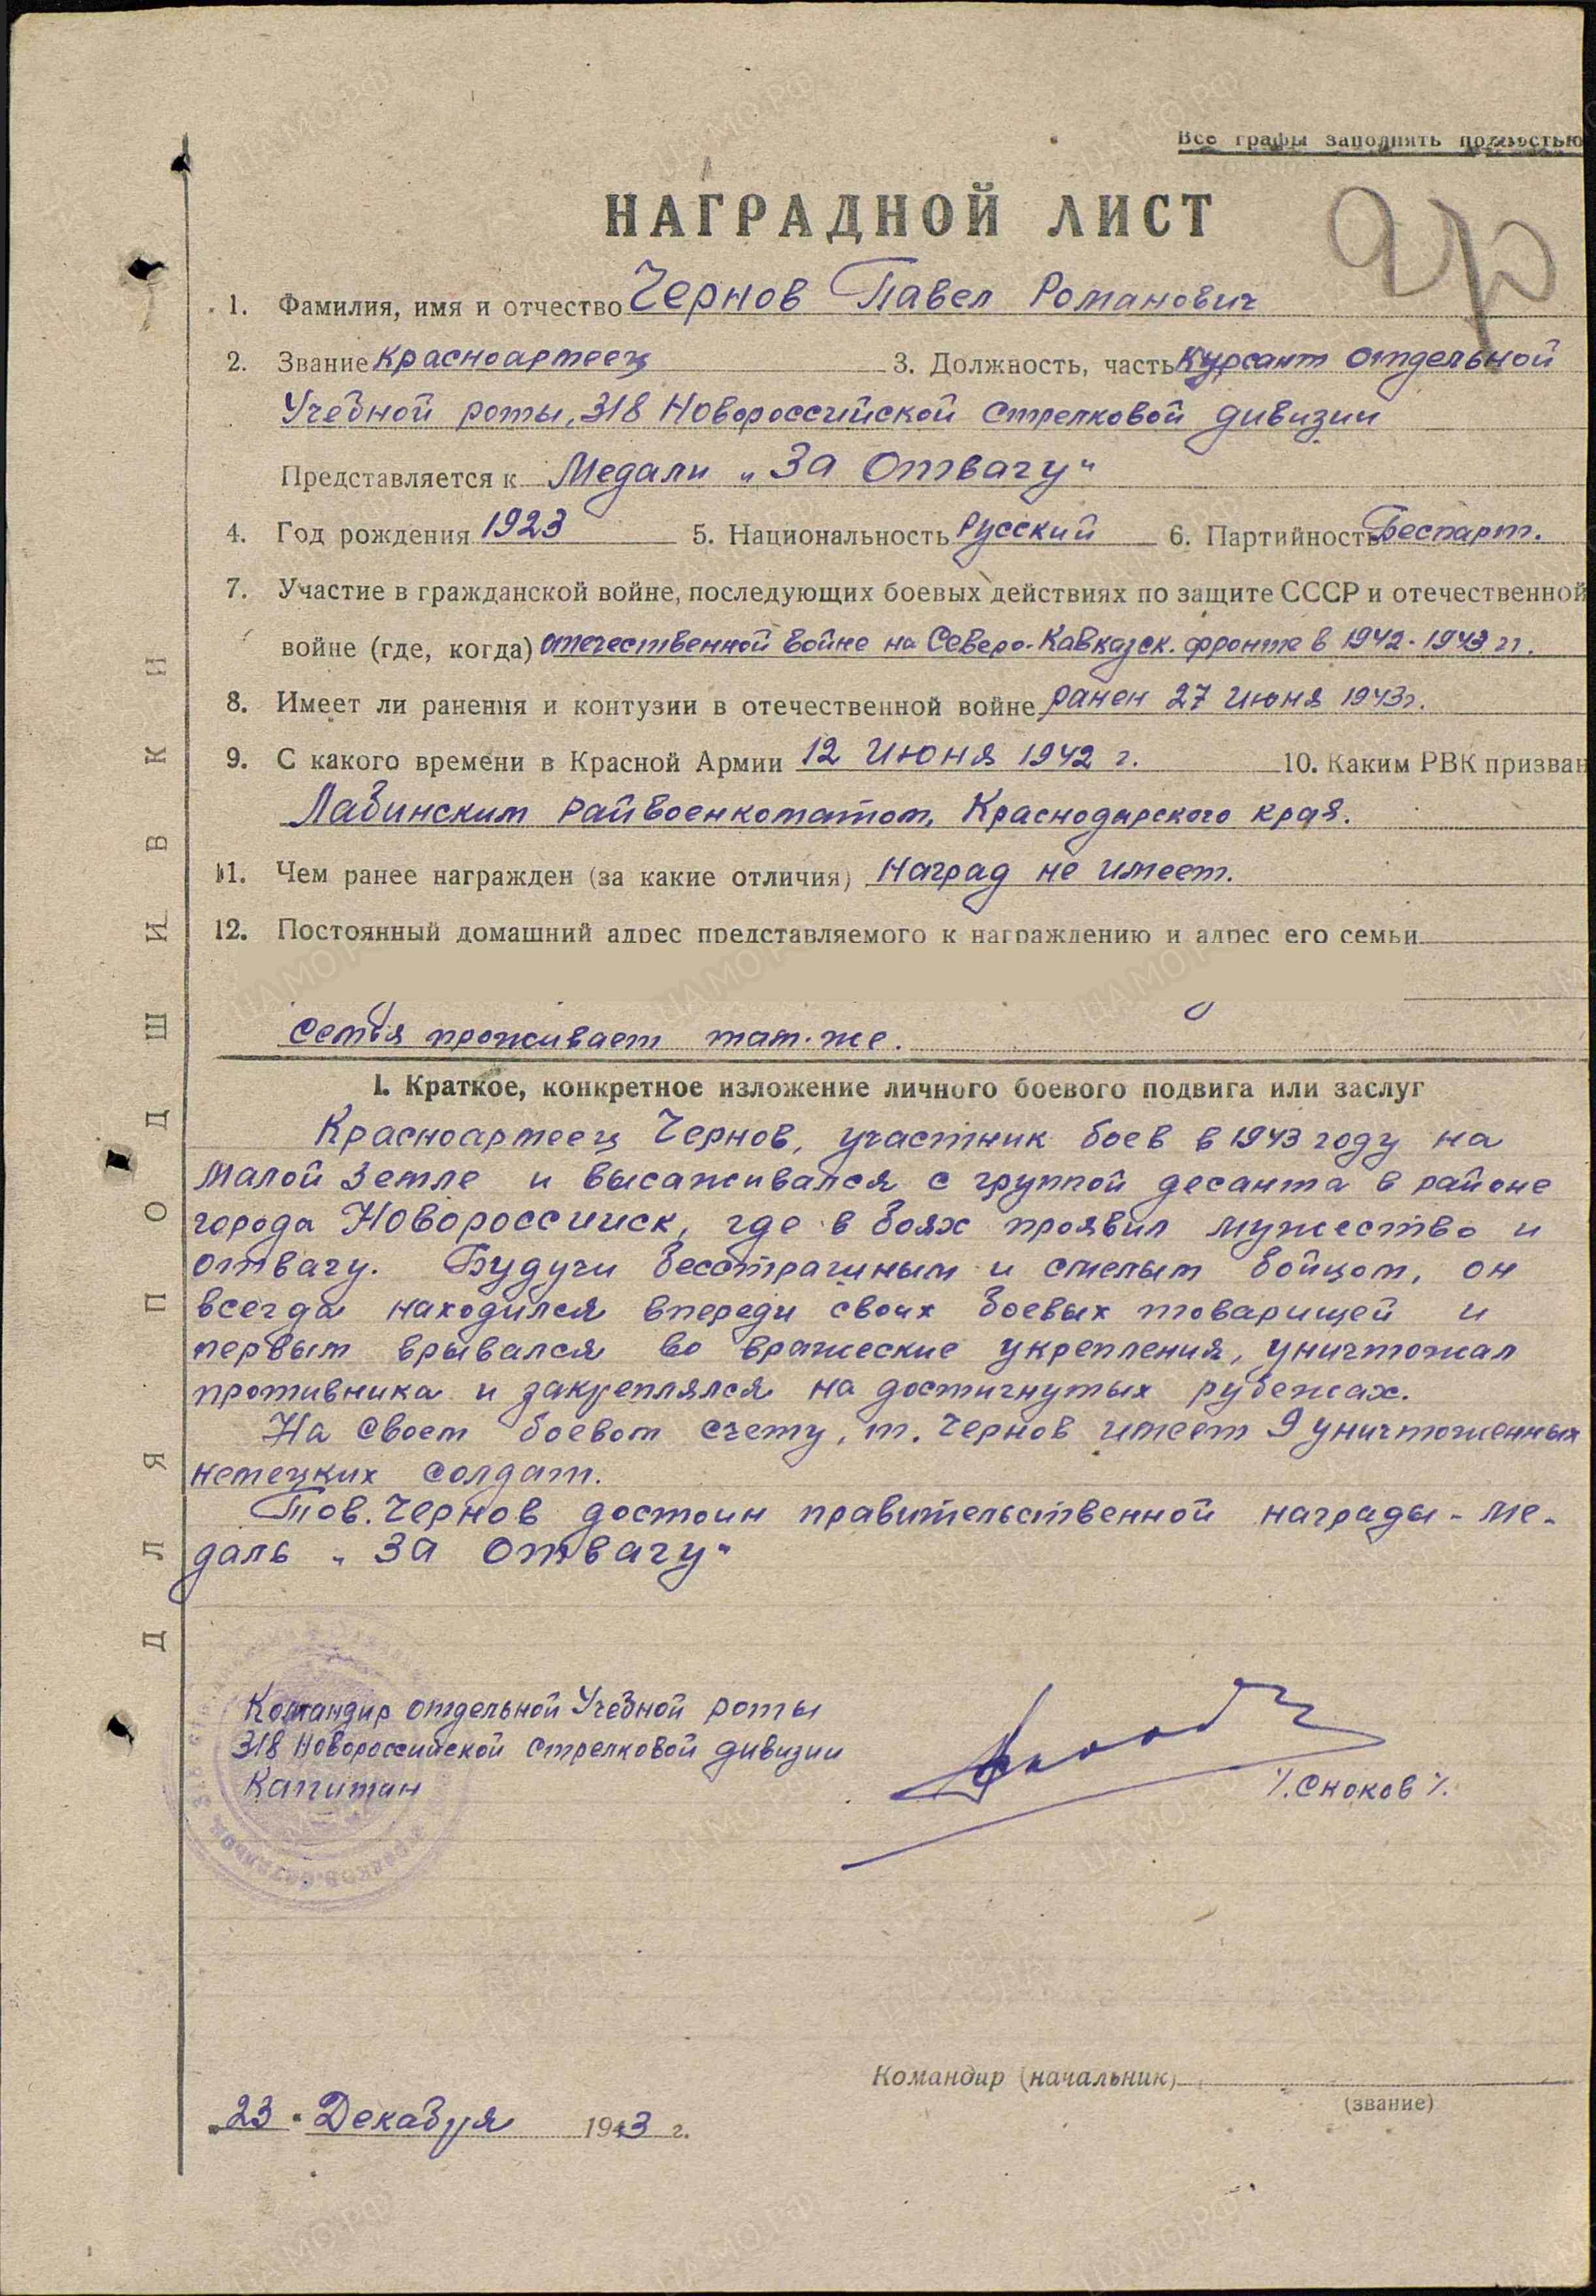 Все графы заполнять полностью
НАГРАДНОЙ ЛИСТ
1. Фамилия, имя и отчество Чернов Павел Романович
2. Звание красноармеец 3. Должность, часть Курсант отдельной
Учебной роты, 318 Новороссийской стрелковой дивизии
Представляется к Медали „За Отвагу“
4. Год рождения 1923 5. Национальность Русский 6. Партийность Беспарт.
7. Участие в гражданской войне, последующих боевых действиях по защите СССР и отечественной
войне (где, когда) отечественной войне на Северо-Кавказск. фронте в 1942-1943 гг.
8. Имеет ли ранения и контузии в отечественной войне ранен 27 июня 1943г.
9. С какого времени в Красной Армии 12 июня 1942 г. 10. Каким РВК призван
Лабинским райвоенкоматом, Краснодарского края.
11. Чем ранее награжден (за какие отличия) Наград не имеет.
12. Постоянный домашний адрес представляемого к награждению и адрес его семьи
Семья проживает там-же.
I. Краткое, конкретное изложение личного боевого подвига или заслуг
Красноармеец Чернов, участник боев в 1943 году на
Малой Земле и высаживался с группой десанта в районе
города Новороссийск, где в боях проявил мужество и
отвагу. Будучи бесстрашным и смелым бойцом, он
всегда находился впереди своих боевых товарищей и
первым врывался во вражеские укрепления, уничтожал
противника и закреплялся на достигнутых рубежах.
На своем боевом счету, т. Чернов имеет 9 уничтоженных
немецких солдат.
Тов. Чернов достоин правительственной награды - ме-
даль „За Отвагу“
Командир отдельной Учебной роты
318 Новороссийской стрелковой дивизии
Капитан
/. Сноков /.
Командир (начальник)
(звание)
„23“ Декабря 1943 г.
ДЛЯ ПОДШИВКИ
ЦАМО.РФ